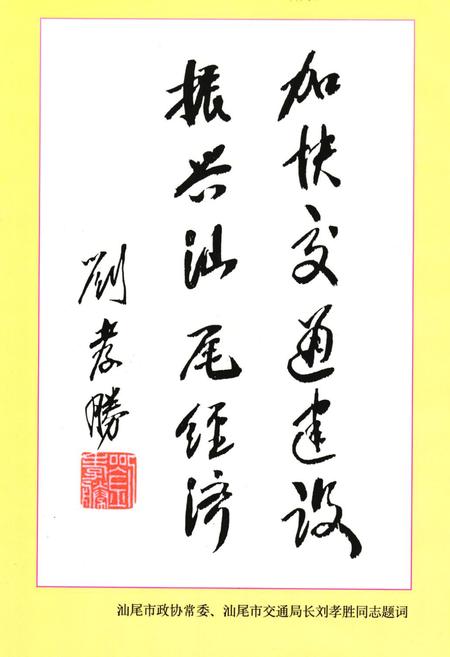 加快交通建设
振兴汕尾经济
劉孝勝
汕尾市政协常委、汕尾市交通局长刘孝胜同志题词